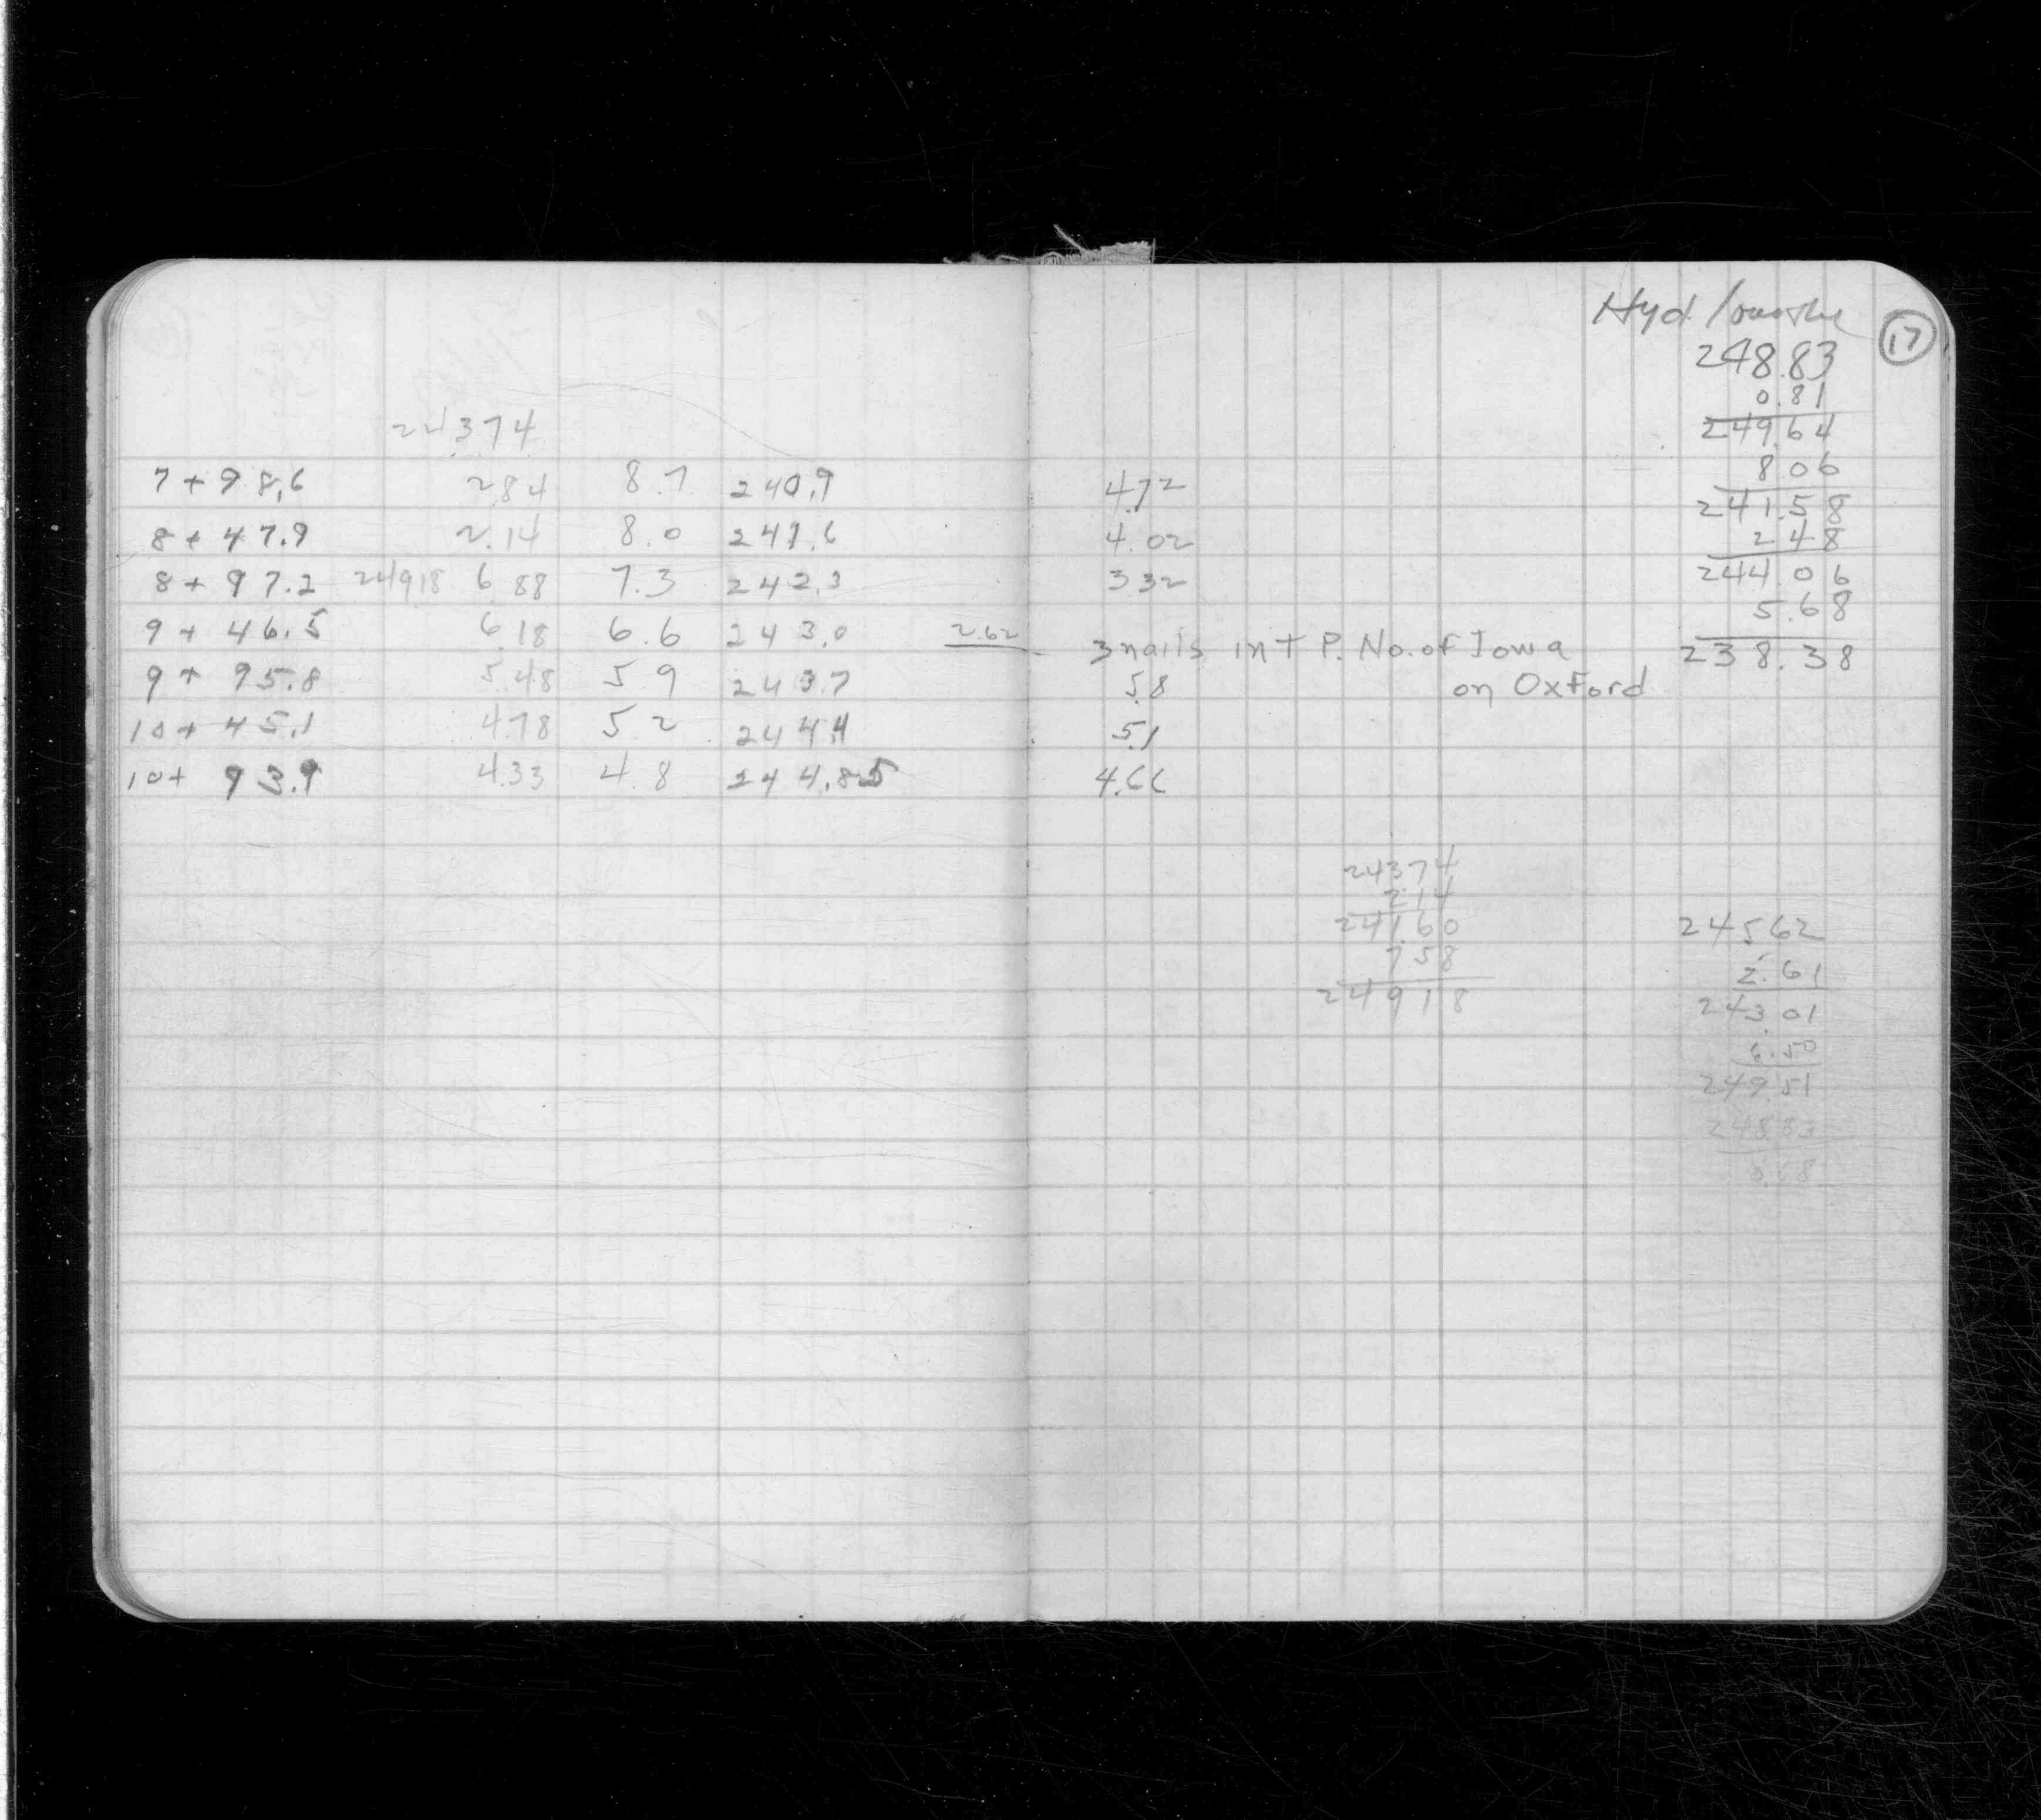 Hyd
17
248.83
0.81
249.64
8.06
241.58
2.48
244.06
5.68
238.38
24374
7+98.6 2.84 8.7 240.9 4.72
8+47.9 2.14 8.0 241.6 4.02
8+97.2 24918 6.88 7.3 242.3 3.32
9+46.5 6.18 6.6 243.0 2.62 3 nails in T P. No. of Iowa
on Oxford
9+95.8 5.48 5.9 243.7 5.8
10+45.1 4.78 5.2 244.4 5.1
10+93.9 4.33 4.8 244.85 4.66
24374
2.14
241.60
7 58
24918
24562
2.61
243.01
6.50
249.51
248.83
0.68